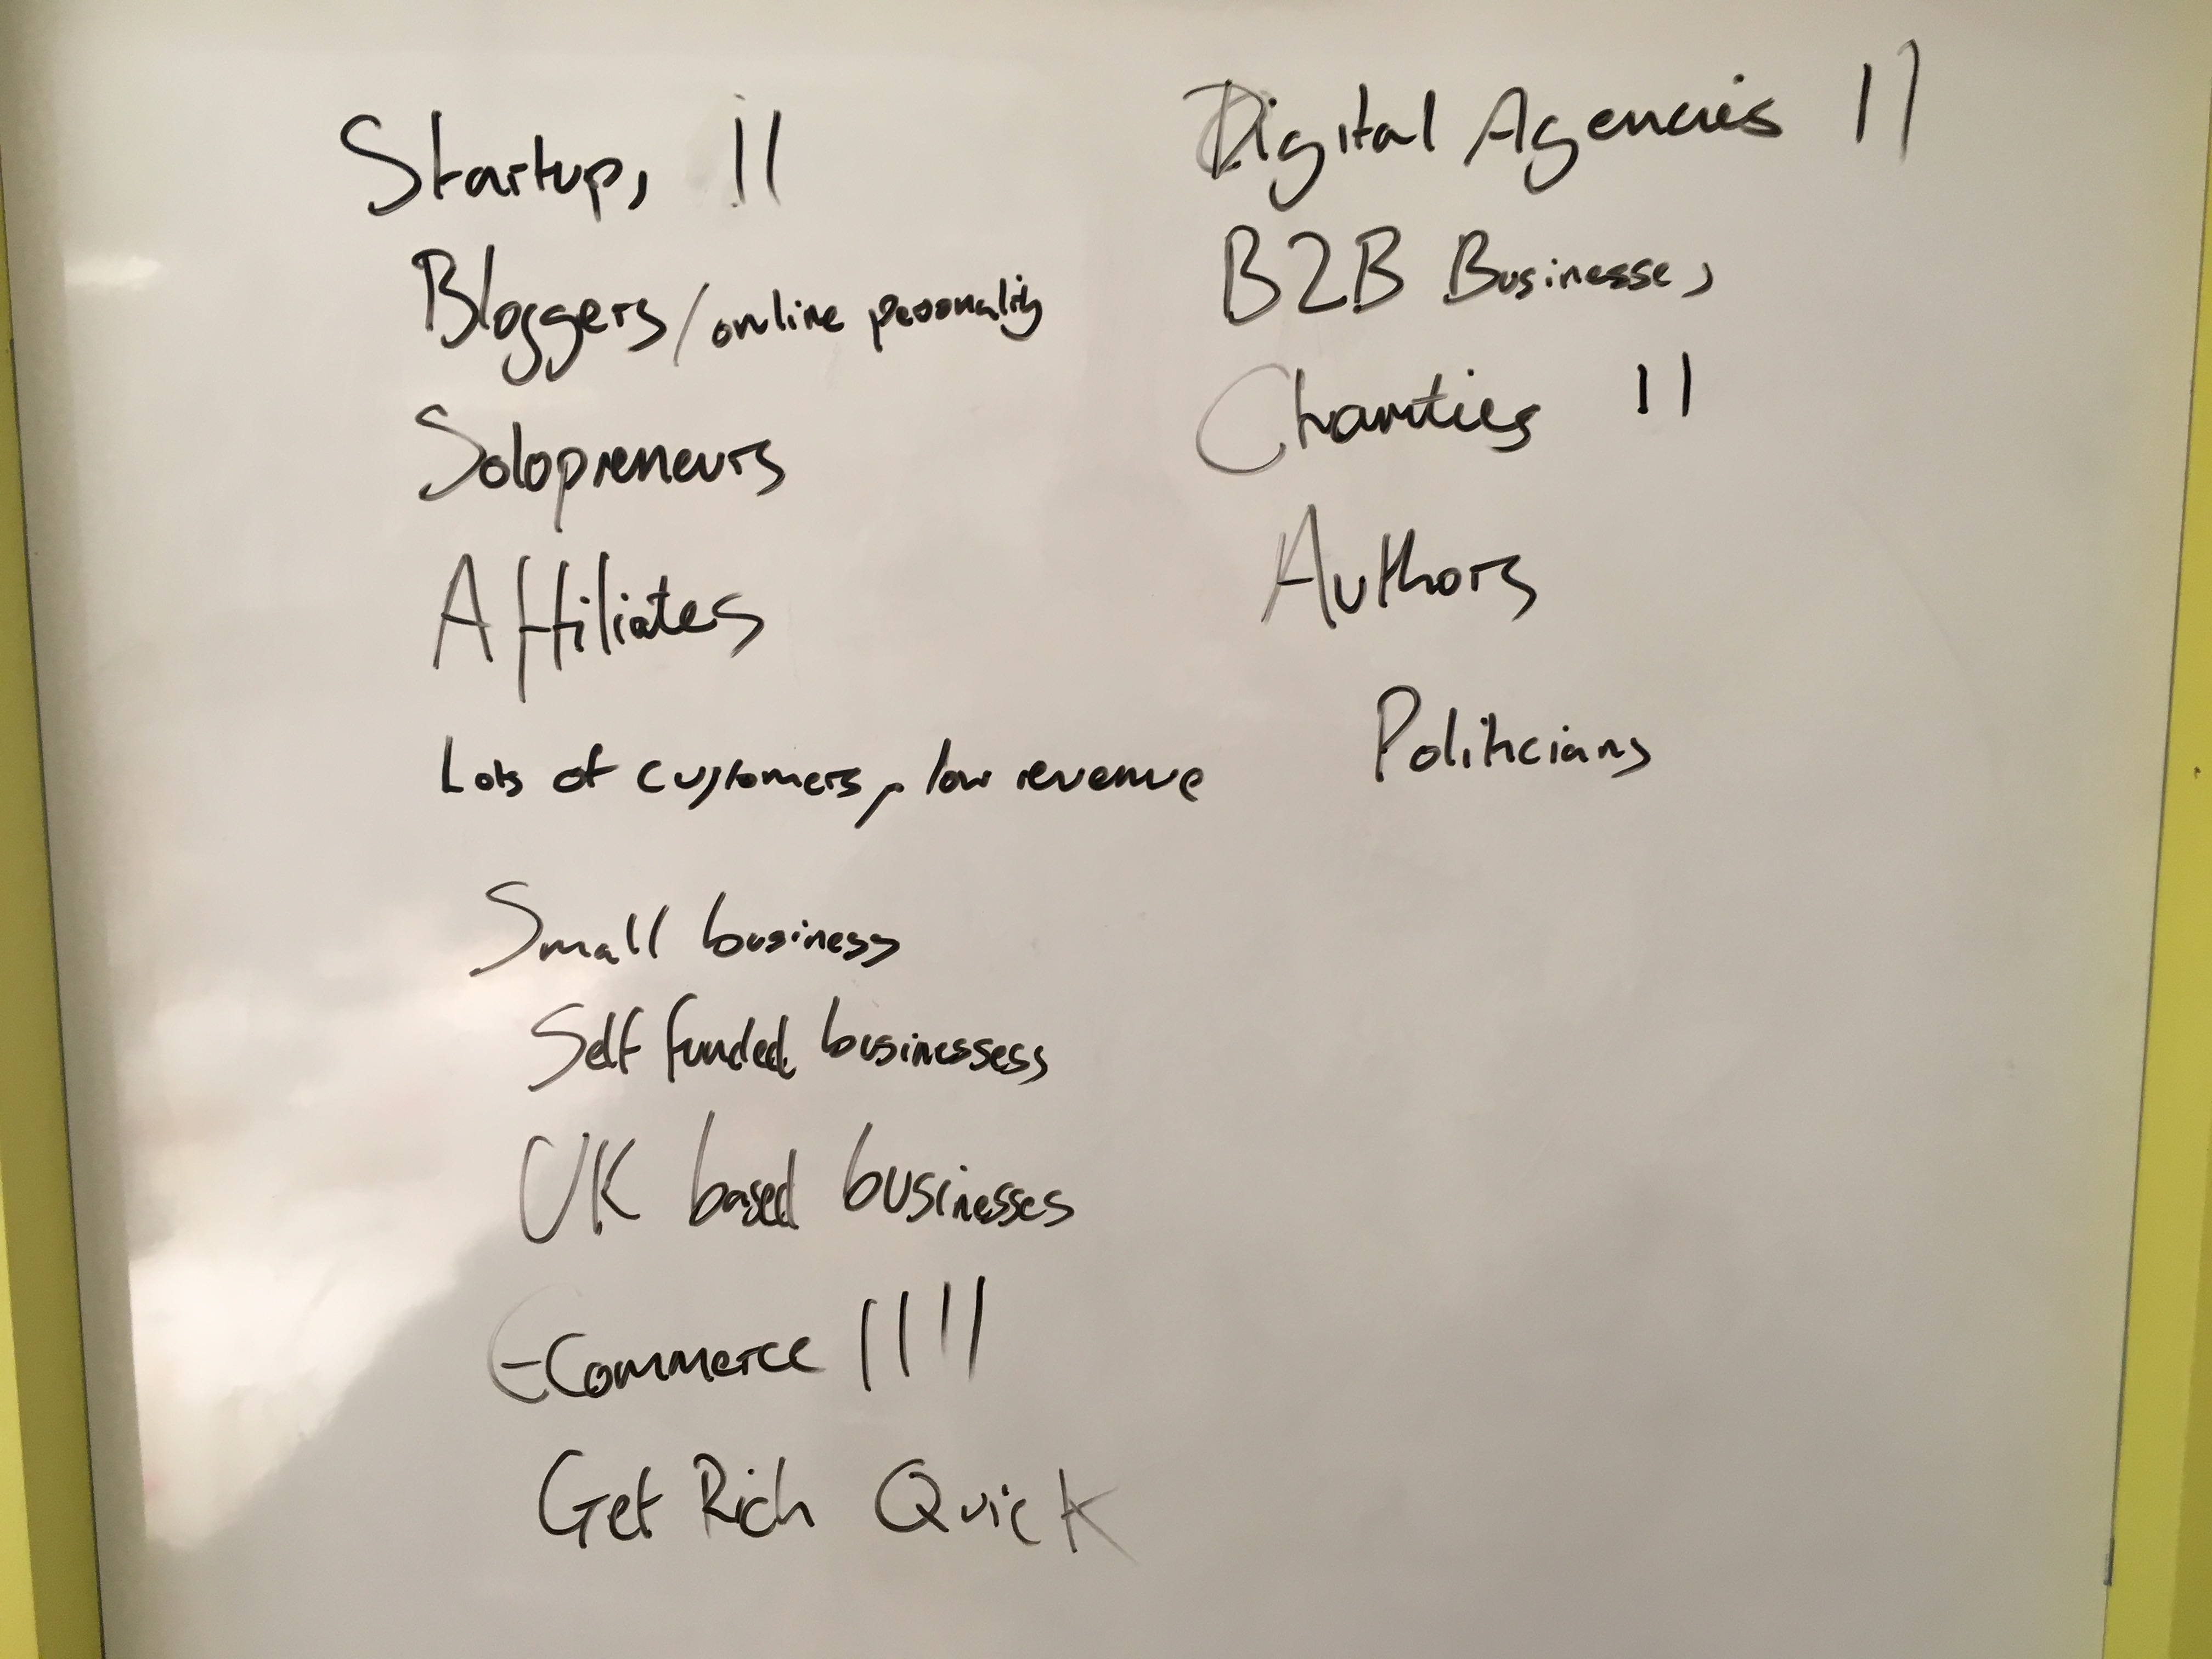 Startups II
Bloggers/online personality
Solopreneurs
Affiliates
Lots of customers, low revenue
Small business
Self funded businessess
UK based businesses
E-Commerce IIII
Get Rich Quick
Digital Agencies II
B2B Businesses
Charities II
Authors
Politicians